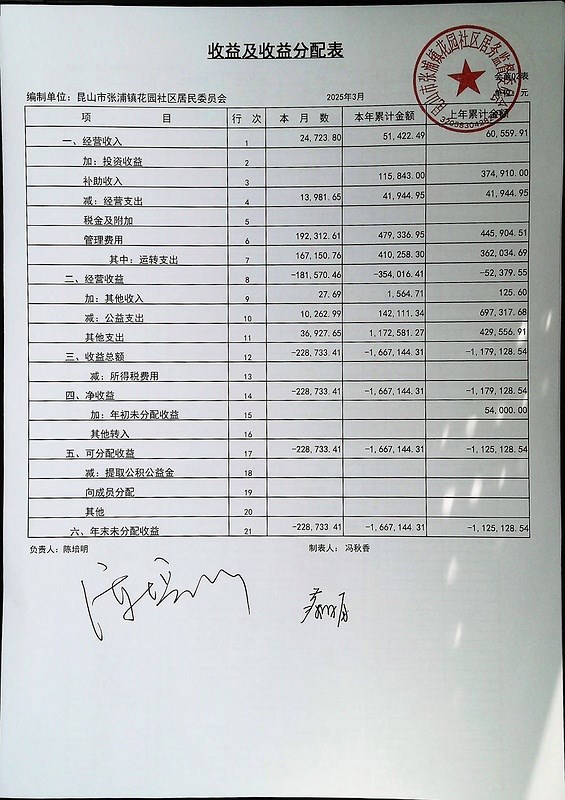 收益及收益分配表
昆山市张浦镇花园社区居务监督委员会
会农02表
编制单位：昆山市张浦镇花园社区居民委员会 2025年3月 元
项 目 行 次 本 月 数 本年累计金额 上年累计金额
一、经营收入 1 24,723.80 51,422.49 60,559.91
加：投资收益 2
补助收入 3 115,843.00 374,910.00
减：经营支出 4 13,981.65 41,944.95 41,944.95
税金及附加 5
管理费用 6 192,312.61 479,336.95 445,904.51
其中：运转支出 7 167,150.76 410,258.30 362,034.69
二、经营收益 8 -181,570.46 -354,016.41 -52,379.55
加：其他收入 9 27.69 1,564.71 125.60
减：公益支出 10 10,262.99 142,111.34 697,317.68
其他支出 11 36,927.65 1,172,581.27 429,556.91
三、收益总额 12 -228,733.41 -1,667,144.31 -1,179,128.54
减：所得税费用 13
四、净收益 14 -228,733.41 -1,667,144.31 -1,179,128.54
加：年初未分配收益 15 54,000.00
其他转入 16
五、可分配收益 17 -228,733.41 -1,667,144.31 -1,125,128.54
减：提取公积公益金 18
向成员分配 19
其他 20
六、年末未分配收益 21 -228,733.41 -1,667,144.31 -1,125,128.54
负责人：陈培明 制表人：冯秋香
陈培明